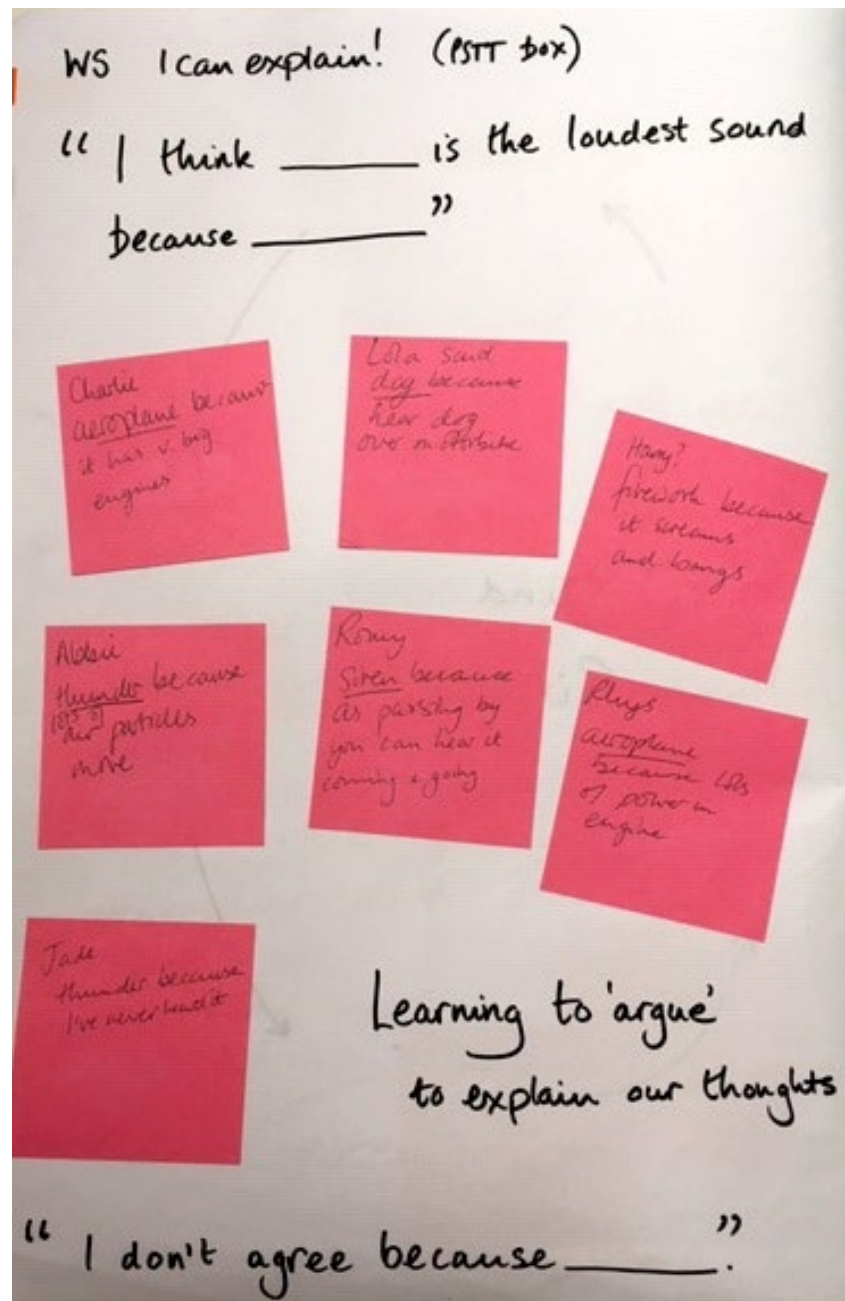 WS I can explain! (PSTT box)
“ I think ______ is the loudest sound
because ________ ”
Charlie
aeroplane because
it has v. big
engines
Lola said
dog because
hear dog
over motorbike
Harry?
firework because
it screams
and bangs
thunder because
air particles
move
Romy
Siren because
as passing by
you can hear it
coming & going
Rhys
aeroplane
because lots
of power in
engine
Jade
thunder because
I've never heard it
Learning to 'argue'
to explain our thoughts
“ I don't agree because ______ ”.